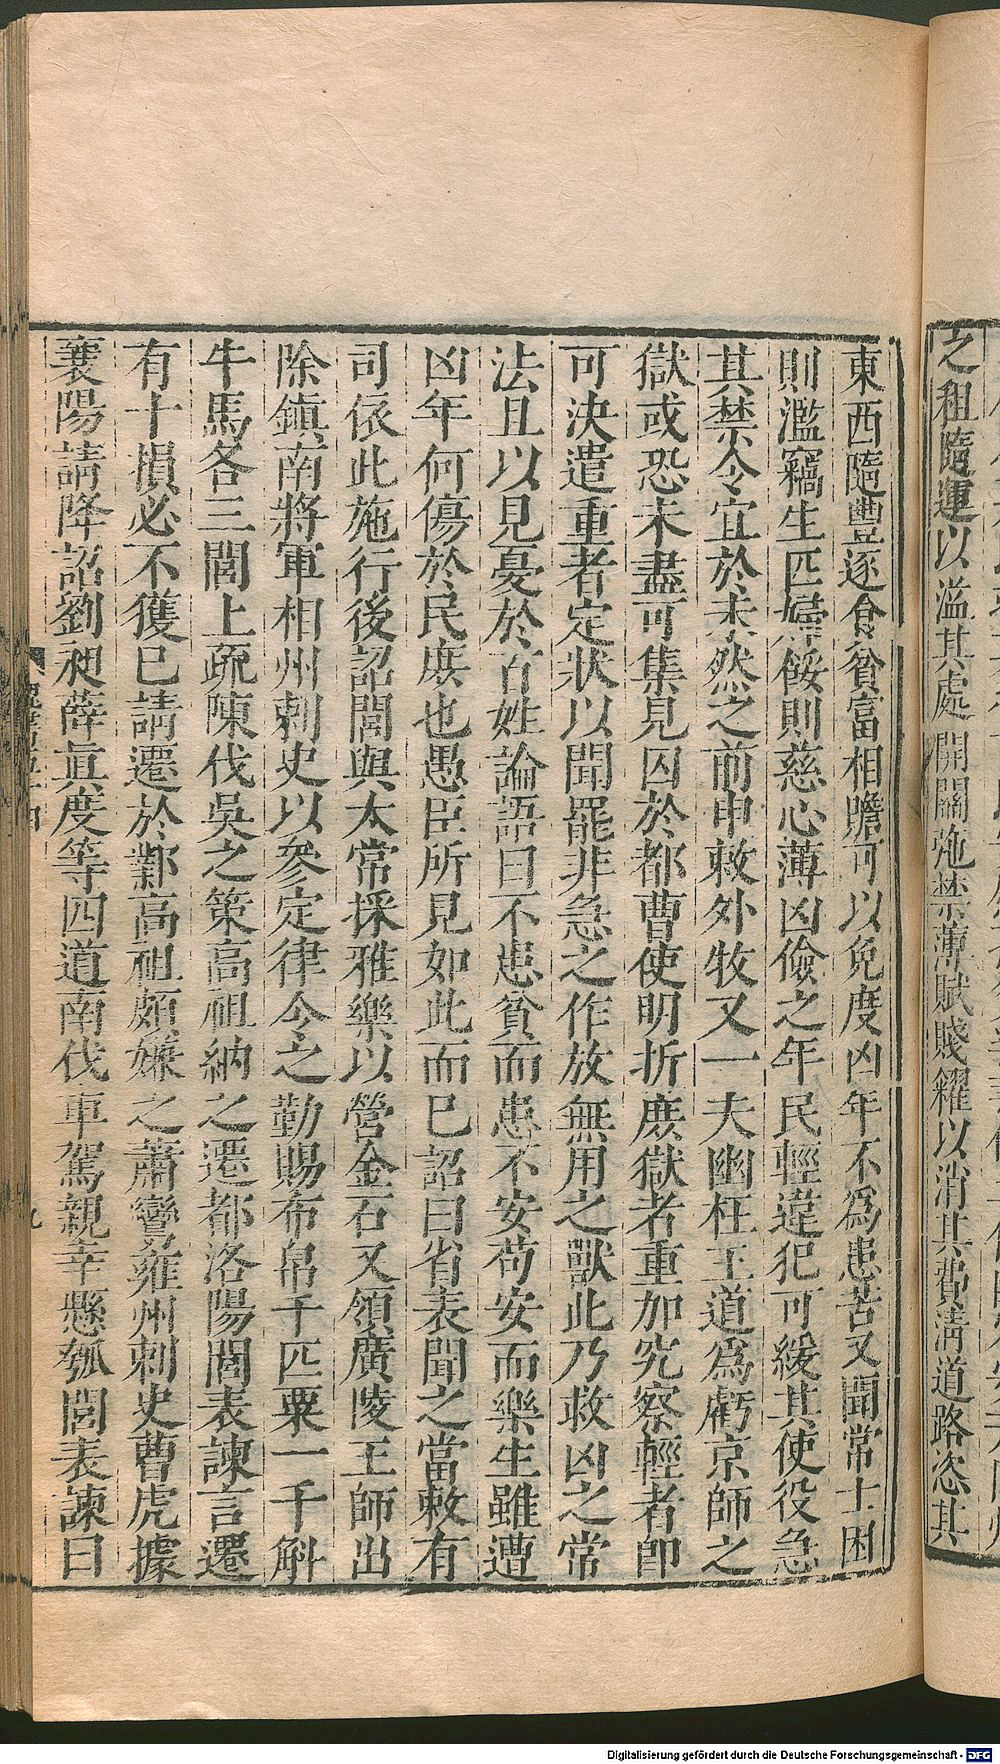 之租隨運以溢其處開關弛禁薄賦賤糴以消其費清道路恣其
東西隨豐逐食貧富相贍可以免度凶年不爲患苦又聞常士困
則濫竊生匹婦餒則慈心薄凶儉之年民輕違犯可緩其使役急
其禁令宜於未然之前申敕外牧又一夫幽枉王道爲虧京師之
獄或恐未盡可集見囚於都曹使明折庶獄者重加究察輕者卽
可決遣重者定狀以聞罷非急之作放無用之獸此乃救凶之常
法且以見憂於百姓論語曰不患貧而患不安苟安而樂生雖遭
凶年何傷於民庶也愚臣所見如此而已詔曰省表聞之當敕有
司依此施行後詔閭與太常採雅樂以營金石又領廣陵王師出
除鎭南將軍相州刺史以參定律令之勤賜布帛千匹粟一千斛
牛馬各三閭上疏陳伐吳之策高祖納之遷都洛陽閭表諫言遷
有十損必不獲已請遷於鄴高祖頗嫌之蕭鸞雍州刺史曹虎據
襄陽請降詔劉昶薛眞度等四道南伐車駕親幸懸瓠閭表諫曰
九
Digitalisierung gefördert durch die Deutsche Forschungsgemeinschaft - DFG